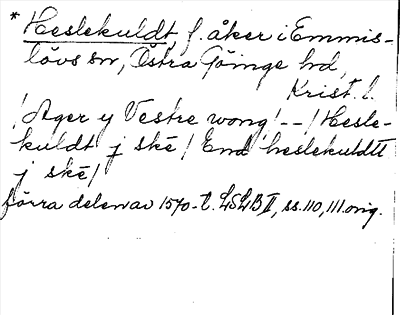 * Heslekuldt, f. åker i Emmis-
lövs sn, Östra Göinge hd,
Krist. l.
/ Ager y Vestre wong / - - / Hesle-
kuldt j skē / End heslekuldtt
j skē /
förra delen av 1570-t. LSLB II, ss. 110, 111. orig.